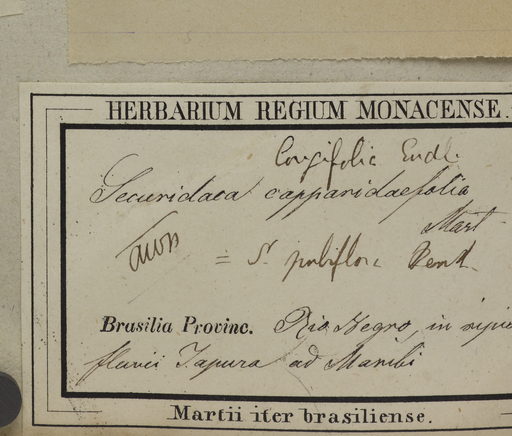 HERBARIUM REGIUM MONACENSE.
longifolia Endl.
Securidaca capparidaefolia
Mart
= S. pubiflora Benth.
Brasilia Provinc. Rio Negro, in ripis
fluvii Japura ad Manibi
Martii iter brasiliense.